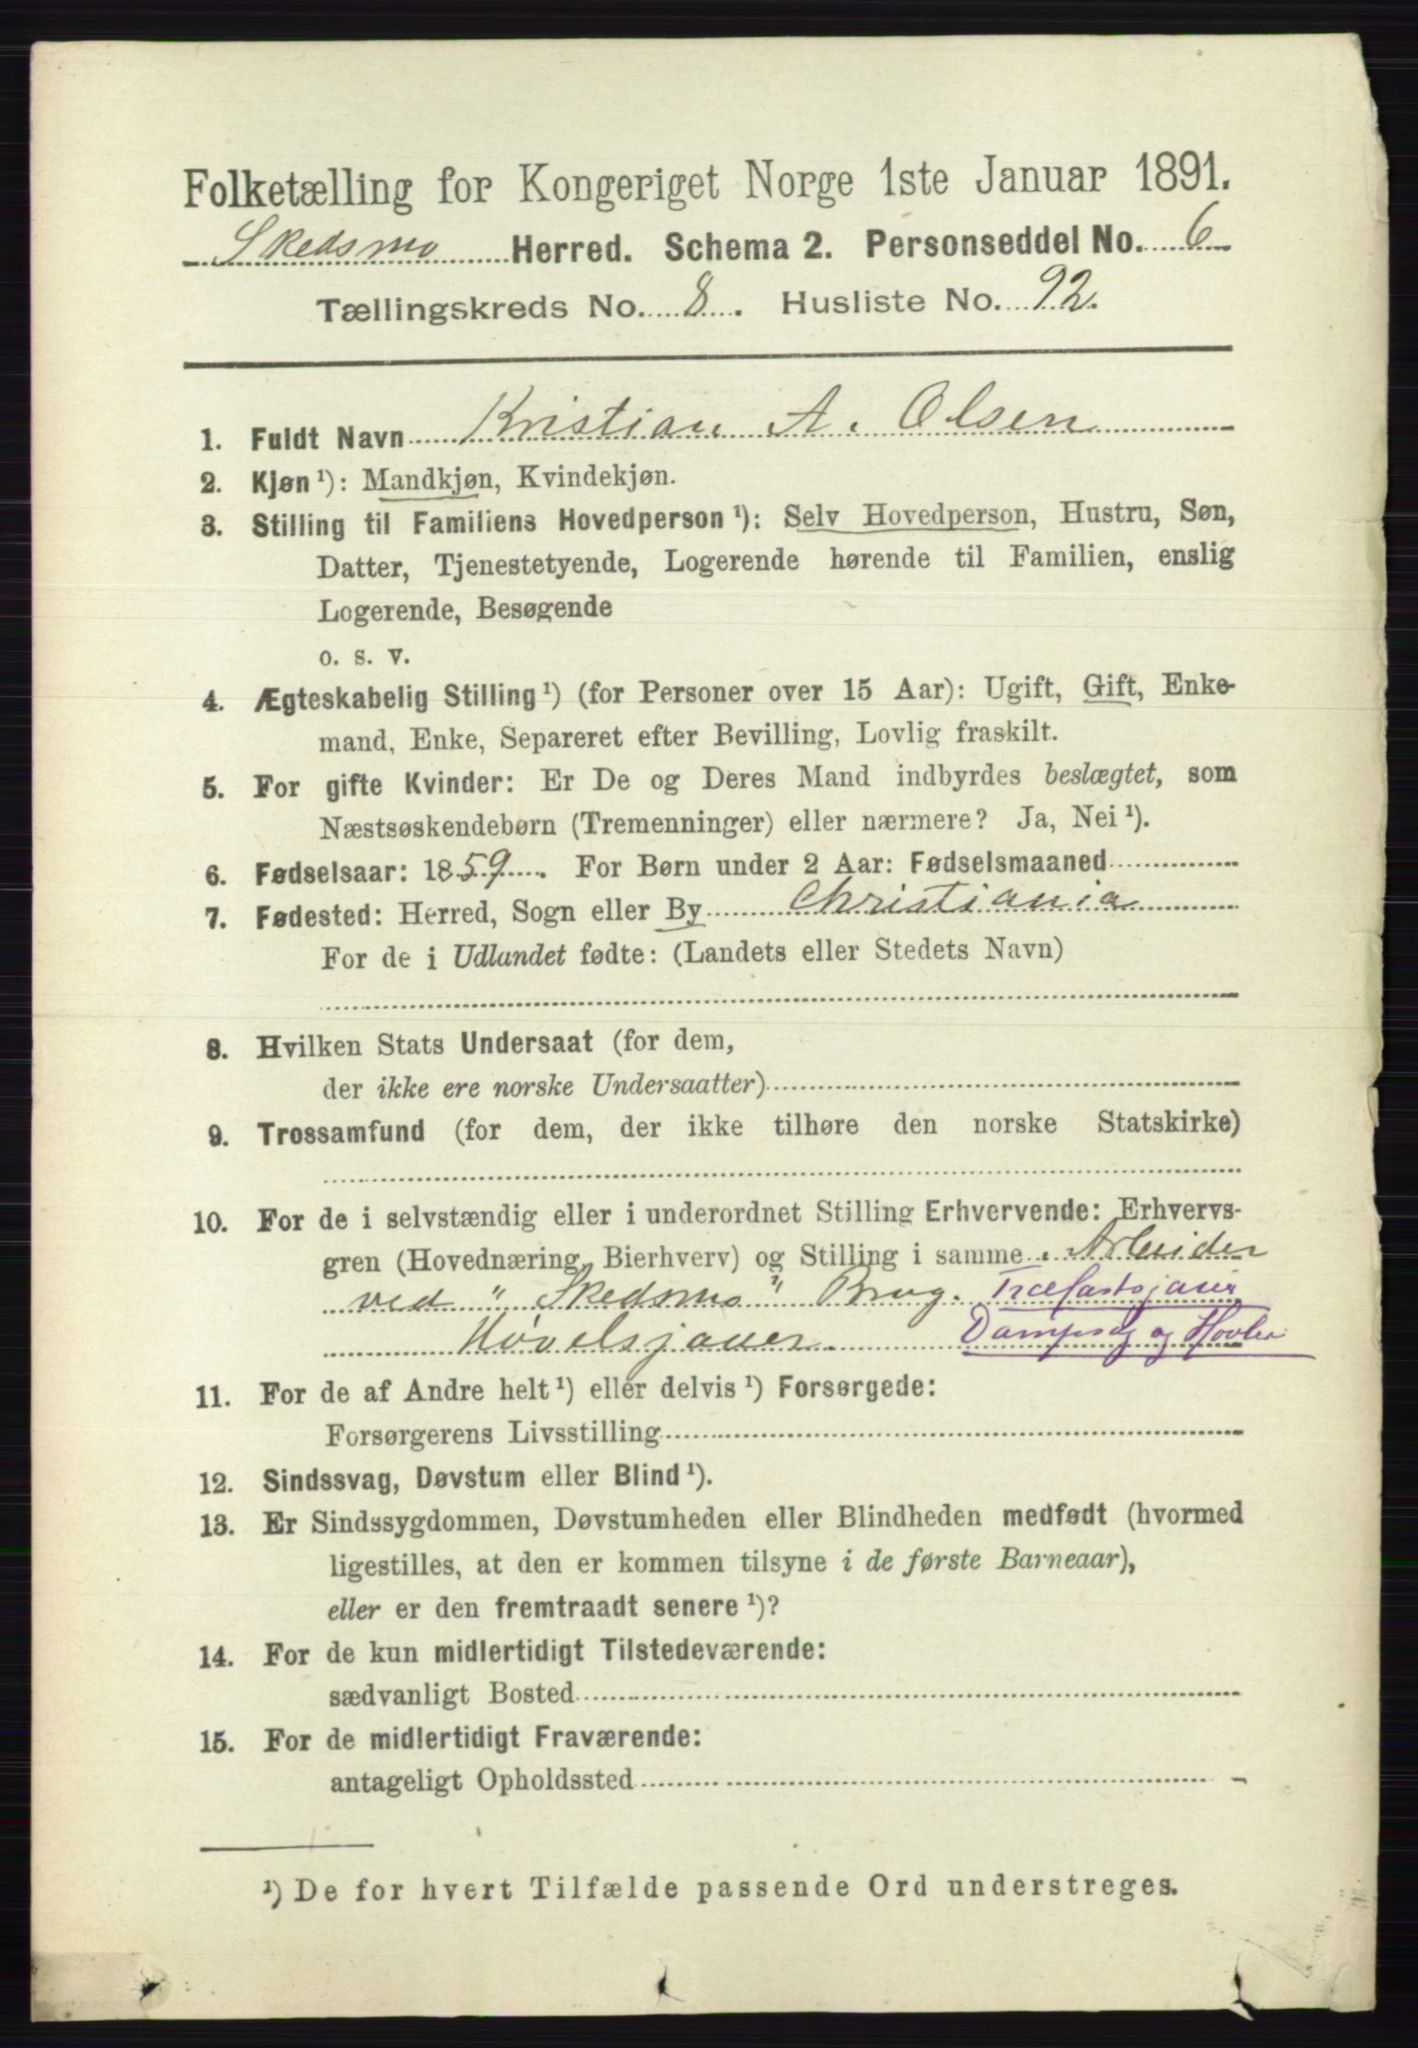 Folketælling for Kongeriget Norge 1ste Januar 1891.
Skedsmo Herred. Schema 2. Personseddel No. 6
Tællingskreds No. 8. Husliste No. 92.
1. Fuldt Navn Kristian A. Olsen
2. Kjøn ¹): Mandkjøn, Kvindekjøn.
3. Stilling til Familiens Hovedperson ¹): Selv Hovedperson, Hustru, Søn,
Datter, Tjenestetyende, Logerende hørende til Familien, enslig
Logerende, Besøgende
o. s. v.
4. Ægteskabelig Stilling ¹) (for Personer over 15 Aar): Ugift, Gift, Enke-
mand, Enke, Separeret efter Bevilling, Lovlig fraskilt.
5. For gifte Kvinder: Er De og Deres Mand indbyrdes beslægtet, som
Næstsøskendebørn (Tremenninger) eller nærmere? Ja, Nei ¹).
6. Fødselsaar: 1859. For Børn under 2 Aar: Fødselsmaaned
7. Fødested: Herred, Sogn eller By Christiania
For de i Udlandet fødte: (Landets eller Stedets Navn)
8. Hvilken Stats Undersaat (for dem,
der ikke ere norske Undersaatter)
9. Trossamfund (for dem, der ikke tilhøre den norske Statskirke)
10. For de i selvstændig eller i underordnet Stilling Erhvervende: Erhvervs-
gren (Hovednæring, Bierhverv) og Stilling i samme. Arbeider
ved "Skedsmo" Brug. Trælastsjauer
Høvelsjauer. Dampsag og Høvleri
11. For de af Andre helt ¹) eller delvis ¹) Forsørgede:
Forsørgerens Livsstilling
12. Sindssvag, Døvstum eller Blind ¹).
13. Er Sindssygdommen, Døvstumheden eller Blindheden medfødt (hvormed
ligestilles, at den er kommen tilsyne i de første Barneaar),
eller er den fremtraadt senere ¹)?
14. For de kun midlertidigt Tilstedeværende:
sædvanligt Bosted
15. For de midlertidigt Fraværende:
antageligt Opholdssted
¹) De for hvert Tilfælde passende Ord understreges.